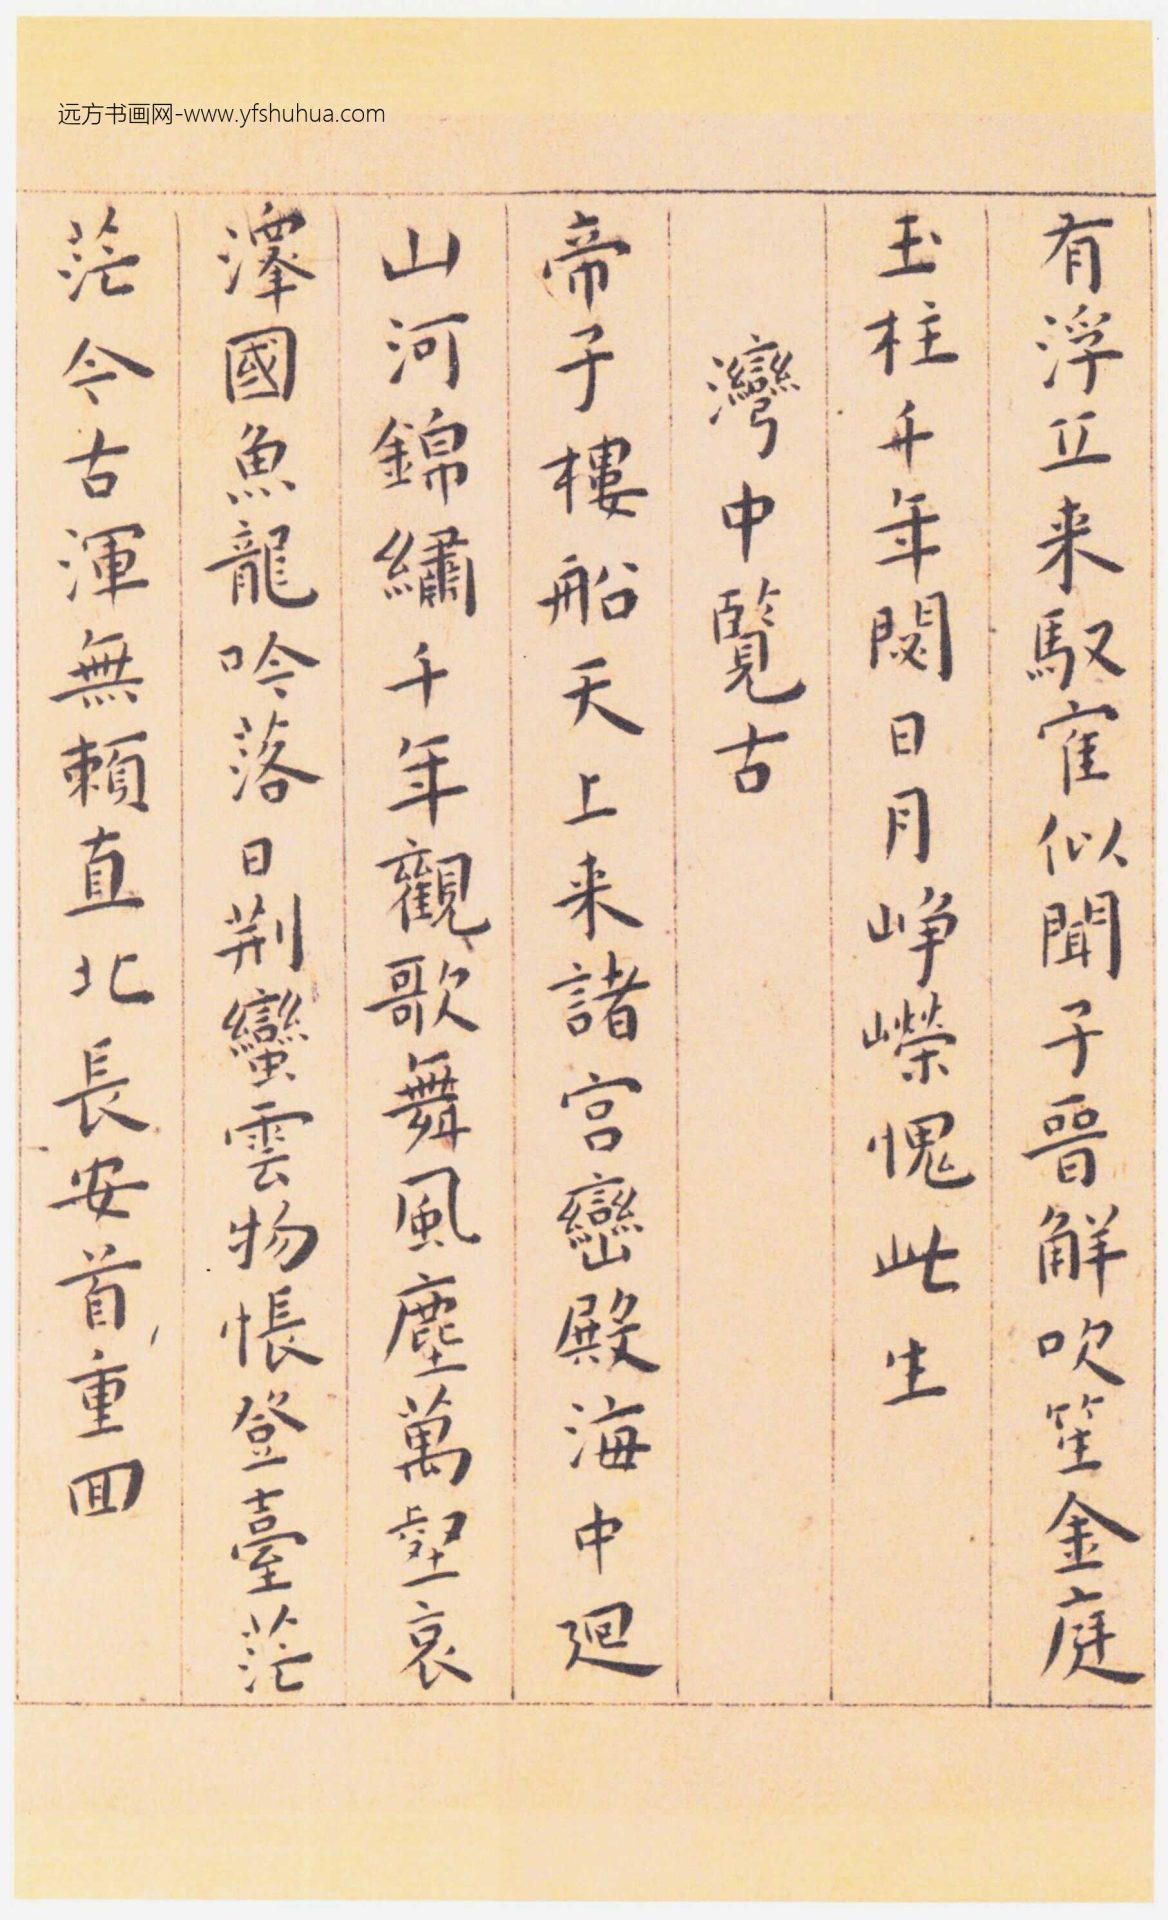 远方书画网-www.yfshuhua.com
有浮丘来馭寉似聞子晉解吹笙金庭
玉柱千年閟日月崢嶸愧此生
灣中覽古
帝子樓船天上来諸宫巒殿海中廻
山河錦繡千年觀歌舞風塵萬壑哀
澤國魚龍吟落日荆蠻雲物悵登臺茫
茫今古渾無賴直北長安首重回